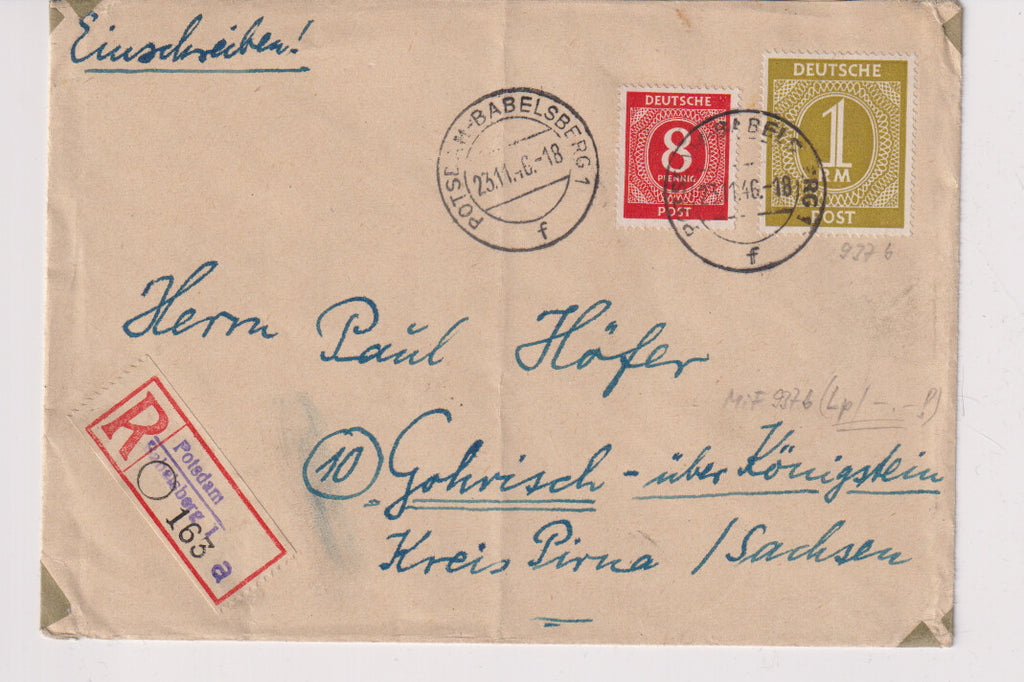 Einschreiben!
POTSDAM-BABELSBERG 1
23.11.46.-18
f
DEUTSCHE
8
PFENNIG
POST
DEUTSCHE
1
RM
POST
BABELSBERG 1
.46.-18
f
937 b
Herrn Paul Höfer
MiF 937b
(10) Gohrisch - über Königstein
Kreis Pirna / Sachsen
R
Potsdam
Babelsberg 1
163 a